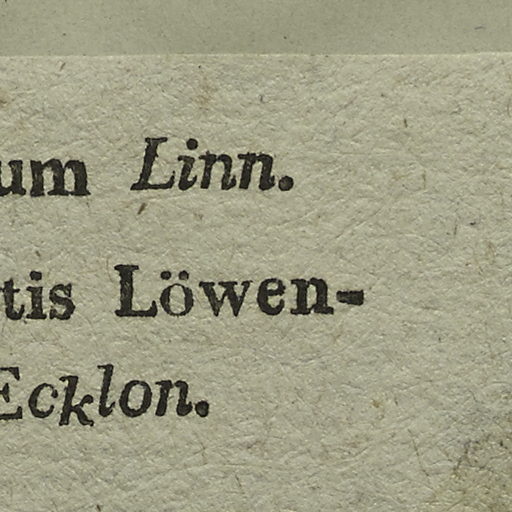 um Linn.
tis Löwen-
Ecklon.